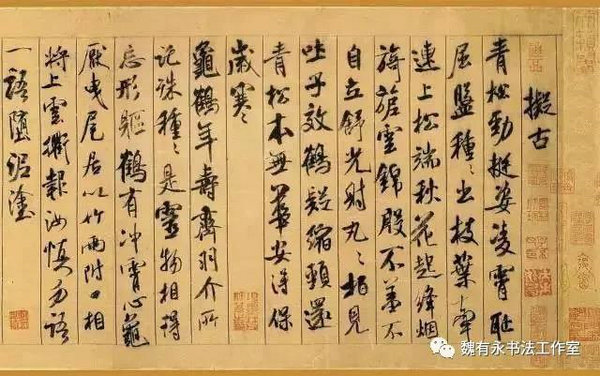 擬古
青松勁挺姿凌霄恥
屈盤種〻出枝葉牽
連上松端秋花起絳烟
旖旎雲錦殷不羞不
自立舒光射丸〻柏見
吐子效鶴疑縮頸還
青松本無華安得保
歲寒
龜鶴年壽齊羽介所
託殊種〻是靈物相得
忘形軀鶴有冲霄心龜
厭曳尾居以竹兩附口相
將上雲衢報汝慎勿語
一語墮泥塗
魏有永书法工作室